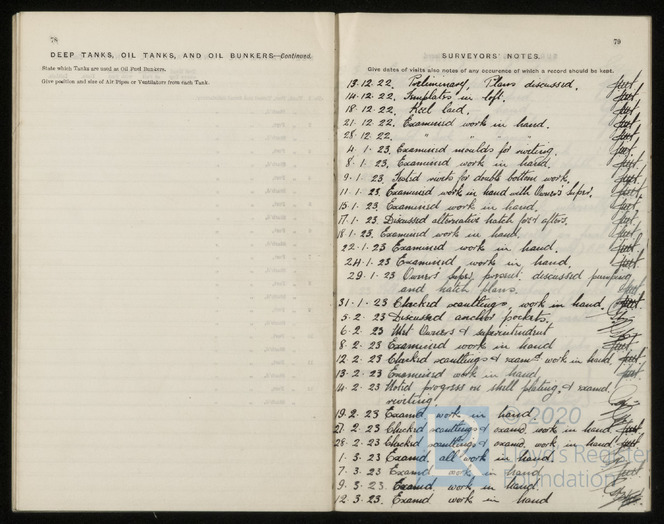 78
DEEP TANKS, OIL TANKS, AND OIL BUNKERS—Continued.
State which Tanks are used as Oil Fuel Bunkers.
Give position and size of Air Pipes or Ventilators from each Tank.
79
SURVEYORS' NOTES.
Give dates of visits also notes of any occurence of which a record should be kept.
13.12.22. Preliminary, Plans discussed.
14.12.22. Templates in loft.
18.12.22. Keel laid.
21.12.22. Examined work in hand.
28.12.22. " " " "
4.1.23. Examined moulds for riveting.
8.1.23. Examined work in hand.
9.1.23. Tested rivets for double bottom work.
11.1.23. Examined work in hand with Owner's Supr.
15.1.23. Examined work in hand.
17.1.23. Discussed alternative hatch fore & afters.
18.1.23. Examined work in hand.
22.1.23 Examined work in hand.
24.1.23 Examined work in hand.
29.1.23 Owner's Supr. present. discussed pumping
and hatch plans.
31.1.23 Checked scantlings, work in hand
5.2.23 Discussed anchor pockets.
6.2.23 Met Owners & superintendent
8.2.23 Examined work in hand
12.2.23 Checked scantlings & examd work in hand.
13.2.23 Examined work in hand
14.2.23 Noted progress on shell plating & examd
riveting.
19.2.23 Examd work in hand
27.2.23 Checked scantlings & examd. work in hand
28.2.23 Checked scantlings & examd. work in hand
1.3.23 Examd all work in hand.
7.3.23 Examd work in hand
9.3.23. Examd work in hand.
12.3.23. Examd work in hand
© 2020
Lloyd's Register
Foundation